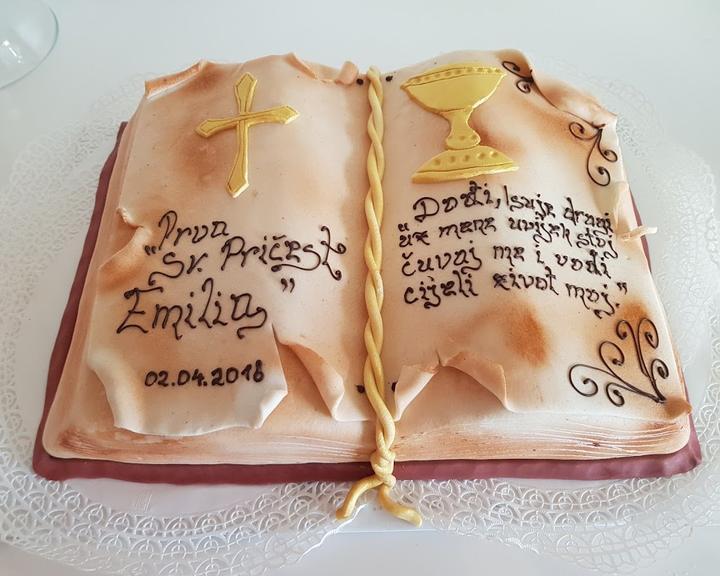 "Prva
Sv. Pričest"
Emilia
02.04.2018
"Dođi, Isuje dragi
uz mene uvijek stoj
čuvaj me i vodi
cijeli život moj."